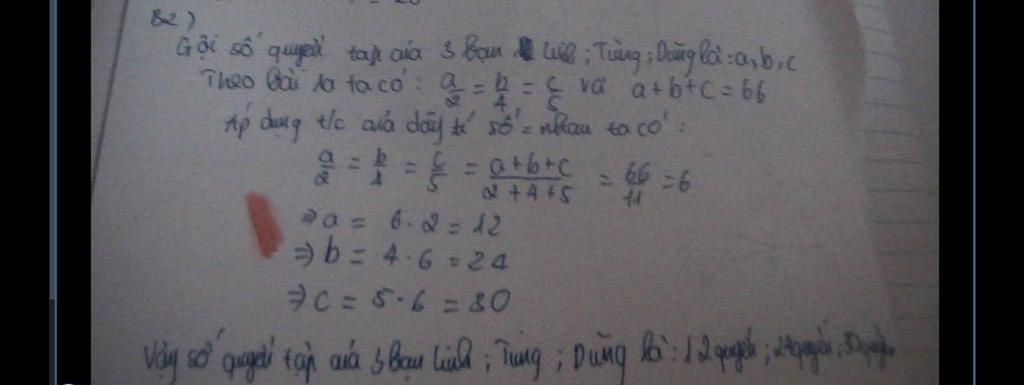 B2)
Gọi số quyển tập của 3 bạn Linh ; Tùng ; Dũng là : a, b, c
Theo bài ra ta có : a/2 = b/4 = c/5 và a + b + c = 66
Áp dụng t/c của dãy tỉ số = nhau ta có :
a/2 = b/4 = c/5 = (a + b + c)/(2 + 4 + 5) = 66/11 = 6
⇒ a = 6 . 2 = 12
⇒ b = 4 . 6 = 24
⇒ c = 5 . 6 = 30
Vậy số quyển tập của 3 bạn Linh ; Tùng ; Dũng là : 12 quyển ; 24 quyển ; 30 quyển